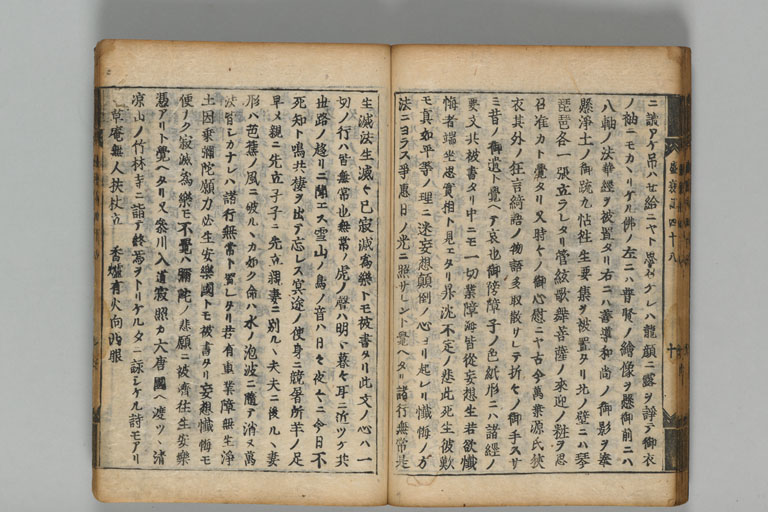 ニ誠アケ吊ハせ給ニヤト覺ヘケレハ龍顔ニ露ヲ諍テ御衣
ノ袖ニモカヽリケル佛ノ左ニハ普賢ノ繪像ヲ懸御前ニハ
八軸ノ法華經ヲ被置タリ右ニハ善導和尚ノ御影ヲ奉
懸淨土ノ御疏九帖往生要集ヲ被置タリ北ノ壁ニハ琴
琵琶各一張立ラレタリ管絃歌舞菩薩ノ來迎ノ粧ヲ思
召准カト覺タリ又時々ノ御心慰ニヤ古今萬葉源氏狹
衣其外ノ狂言綺語ノ物語多取散サレテ折々ノ御手スサ
ミ昔ノ御遺ト覺ヘテ哀也御障子ノ色紙形ニハ諸經ノ
要文共被書タリ中ニモ一切業障海皆從妄想生若欲懺
悔者端坐思實相ト見エタリ昇沈不定ノ悲此死生彼歎
モ真如平等ノ理ニ迷妄想顛倒ノ心ヨリ起レリ懺悔ノ方
法ニヨラス爭惠日ノ光ニ照サレント覺ヘタリ諸行無常是
生滅法生滅々已寂滅爲樂トモ被書タリ此文ノ心ハ一
切ノ行ハ皆無常也無常ノ虎ノ聲ハ明ヽ暮々耳ニ近ツケ共
世路ノ趨リニ聞エス雪山ノ鳥ノ音ハ日々夜々ニ今日不
死知ト鳴共棲ヲ出テ忘レス冥途ノ使身ニ競暑所羊ノ足
早メ親ニ先立子子ニ先立親妻ニ別ルヽ夫夫ニ後ルヽ妻
形ハ芭蕉ノ風ニ破ルヽカ如ク命ハ水ノ泡波ニ隨テ消ヌ萬
法皆シカナレハ諸行無常ト置レタリ若有重業障無生淨
土因乗彌陀願力必生安樂國トモ被書タリ妄想懺悔モ
便ノク寂滅爲樂モ不覺ハ彌陀ノ悲願ニ被濟往生安樂
憑アリト覺ヘタリ又参川入道寂照カ大唐國ヘ渡ツヽ清
凉山ノ竹林寺ニ詣テ終焉ヲトリケルタニ詠シケル詩モアリ
草庵無人扶杖立　香爐有火向西眠
盛衰記四十八
十